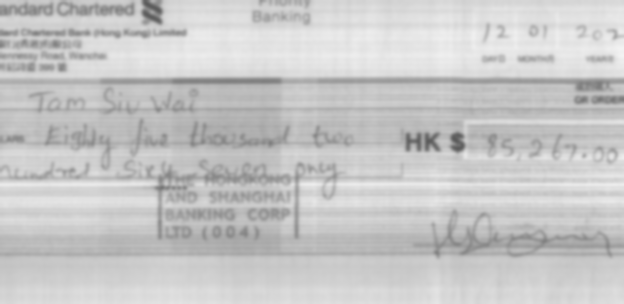 andard Chartered
Priority
Banking
dard Chartered Bank (Hong Kong) Limited
Hennessy Road, Wanchai
12 01 202
DAY/D MONTH/M YEAR/S
Tam Siu Wai
OR ORDER
Eighty five thousand two
HK $ 85,267.00
hundred Sixty Seven only
THE HONGKONG
AND SHANGHAI
BANKING CORP
LTD (004)